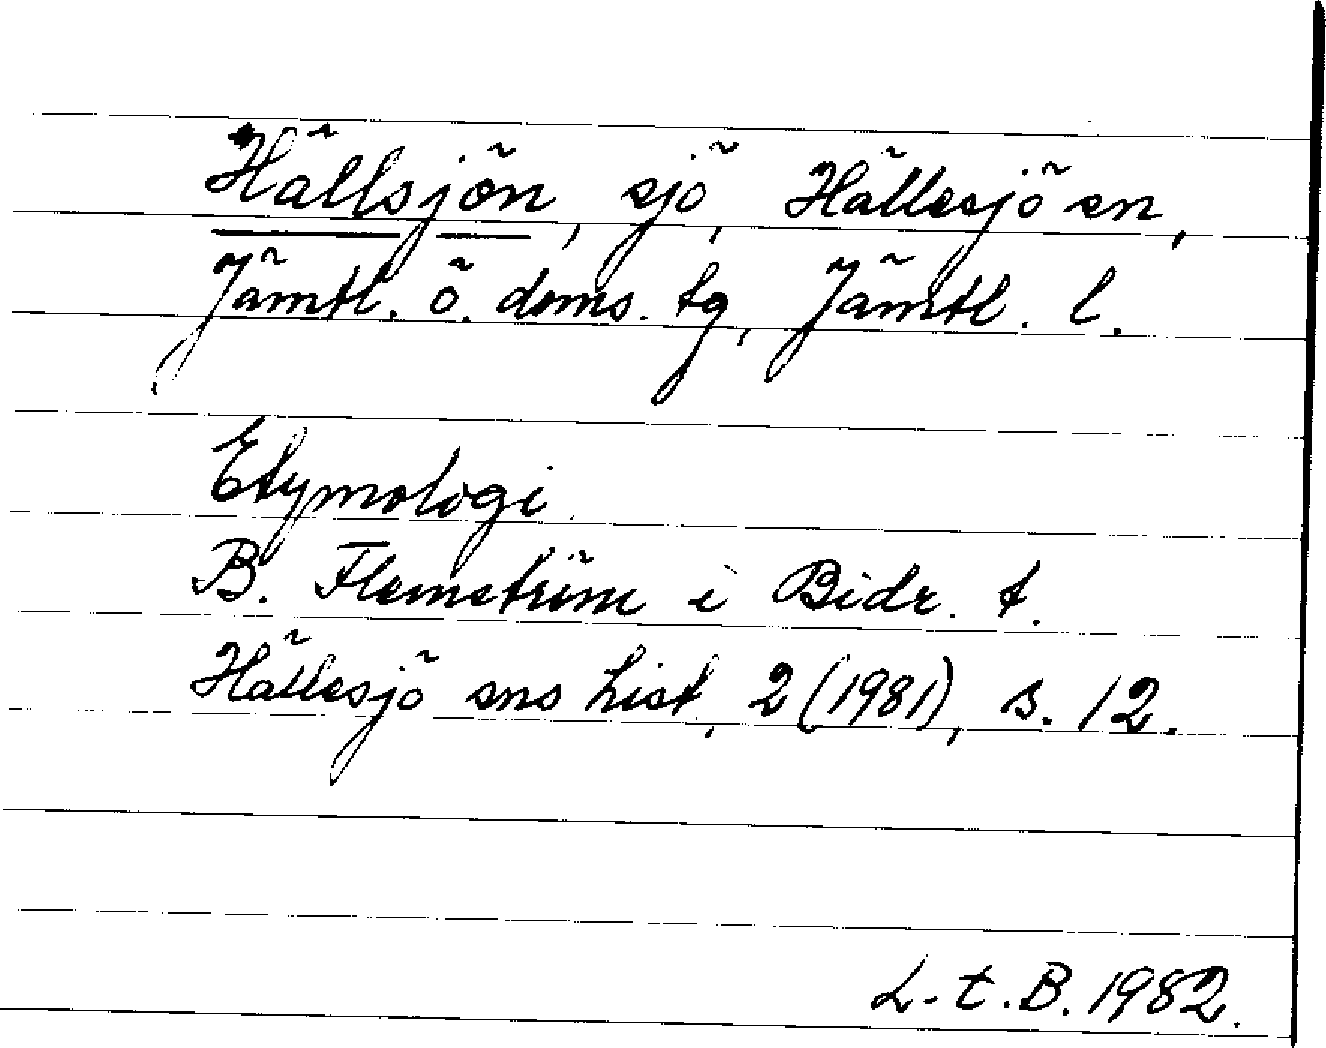 Hällsjön, sjö, Hällesjö sn,
Jämtl. ö. doms. tg, Jämtl. l.
Etymologi.
B. Flemström i Bidr. t.
Hällesjö sns hist, 2 (1981), s. 12.
L. t. B. 1982.